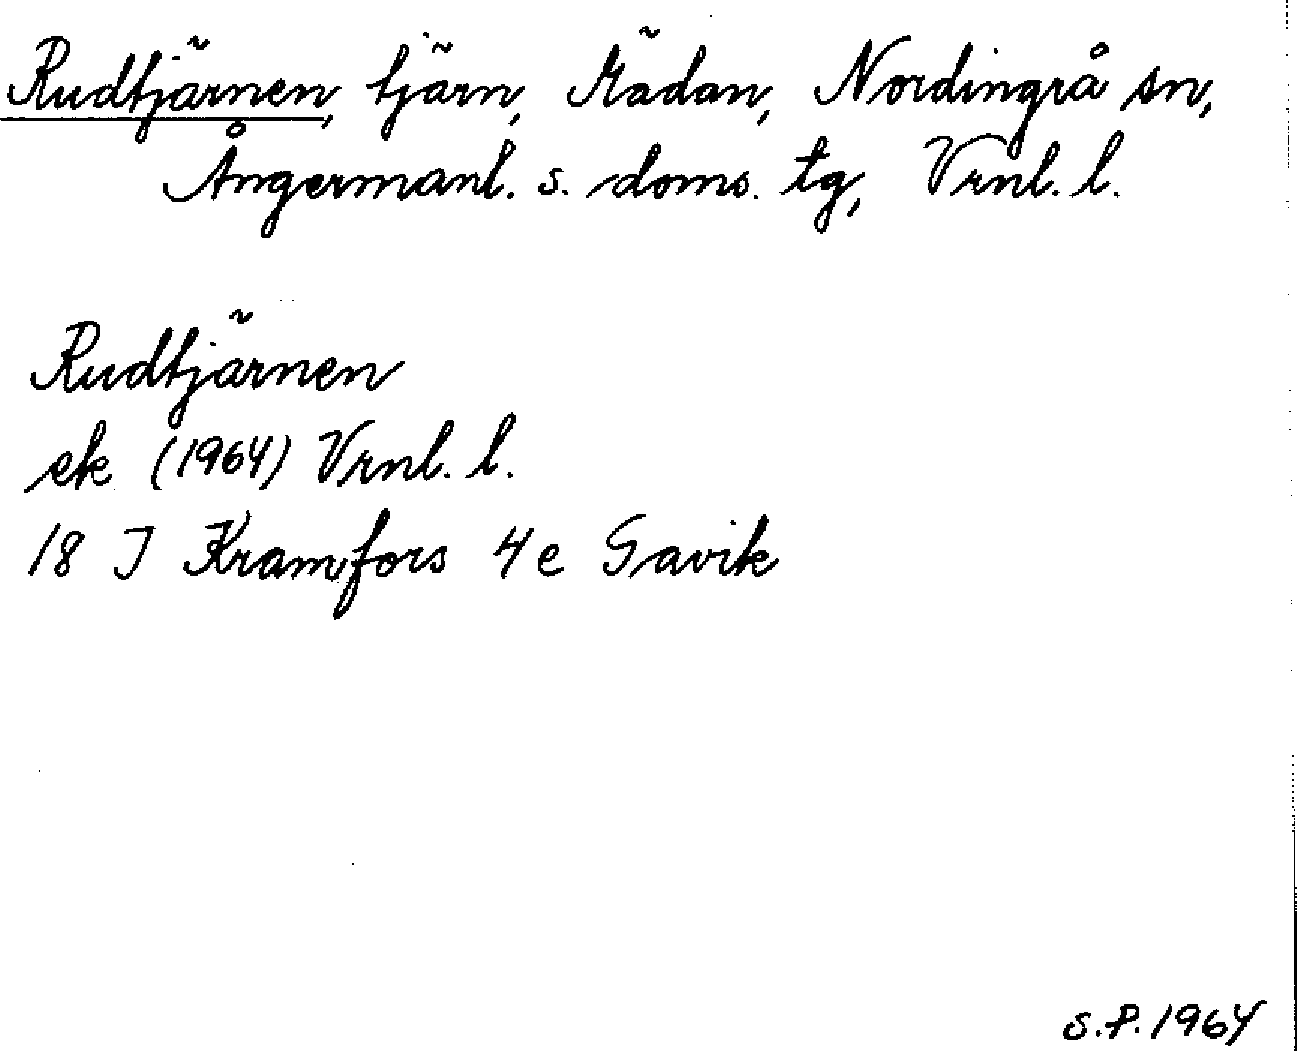 Rudtjärnen, tjärn, Mädan, Nordingrå sn,
Ångermanl. s. doms. tg, Vrnl. l.
Rudtjärnen
ek (1964) Vrnl. l.
18 J Kramfors 4 e Gavik
S.P. 1964